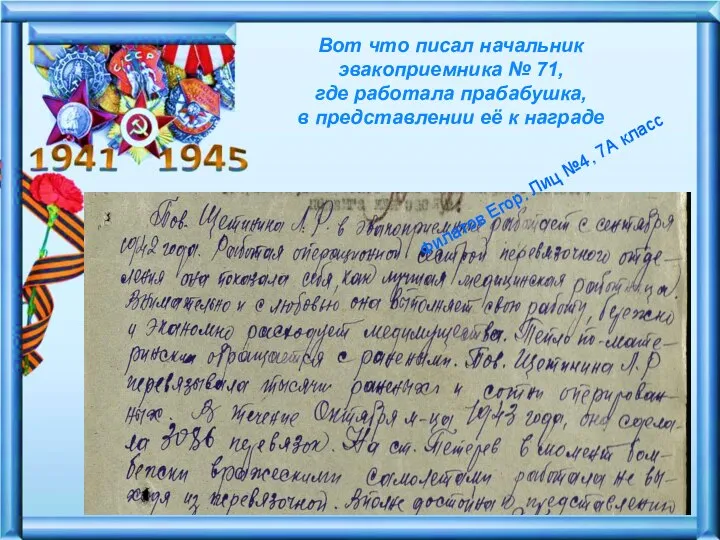 Вот что писал начальник
эвакоприемника № 71,
где работала прабабушка,
в представлении её к награде
Филатов Егор. Лиц №4, 7А класс
СССР
1941 1945
Тов. Щетинина Л.Р. в эвакоприемнике работает с сентября
1942 года. Работая операционной сестрой перевязочного отде-
ления она показала себя, как лучшая медицинская работница.
Внимательно и с любовью она выполняет свою работу, бережно
и экономно расходует медимущества. Тепло по-мате-
рински обращается с ранеными. Тов. Щетинина Л.Р
перевязывала тысячи раненых и сотни оперирован-
ных. В течение Октября м-ца 1943 года, она сдела-
ла 3086 перевязок. На ст. Тетерев в момент бом-
бежки вражескими самолетами работала не вы-
ходя из перевязочной. Вполне достойна к представлению